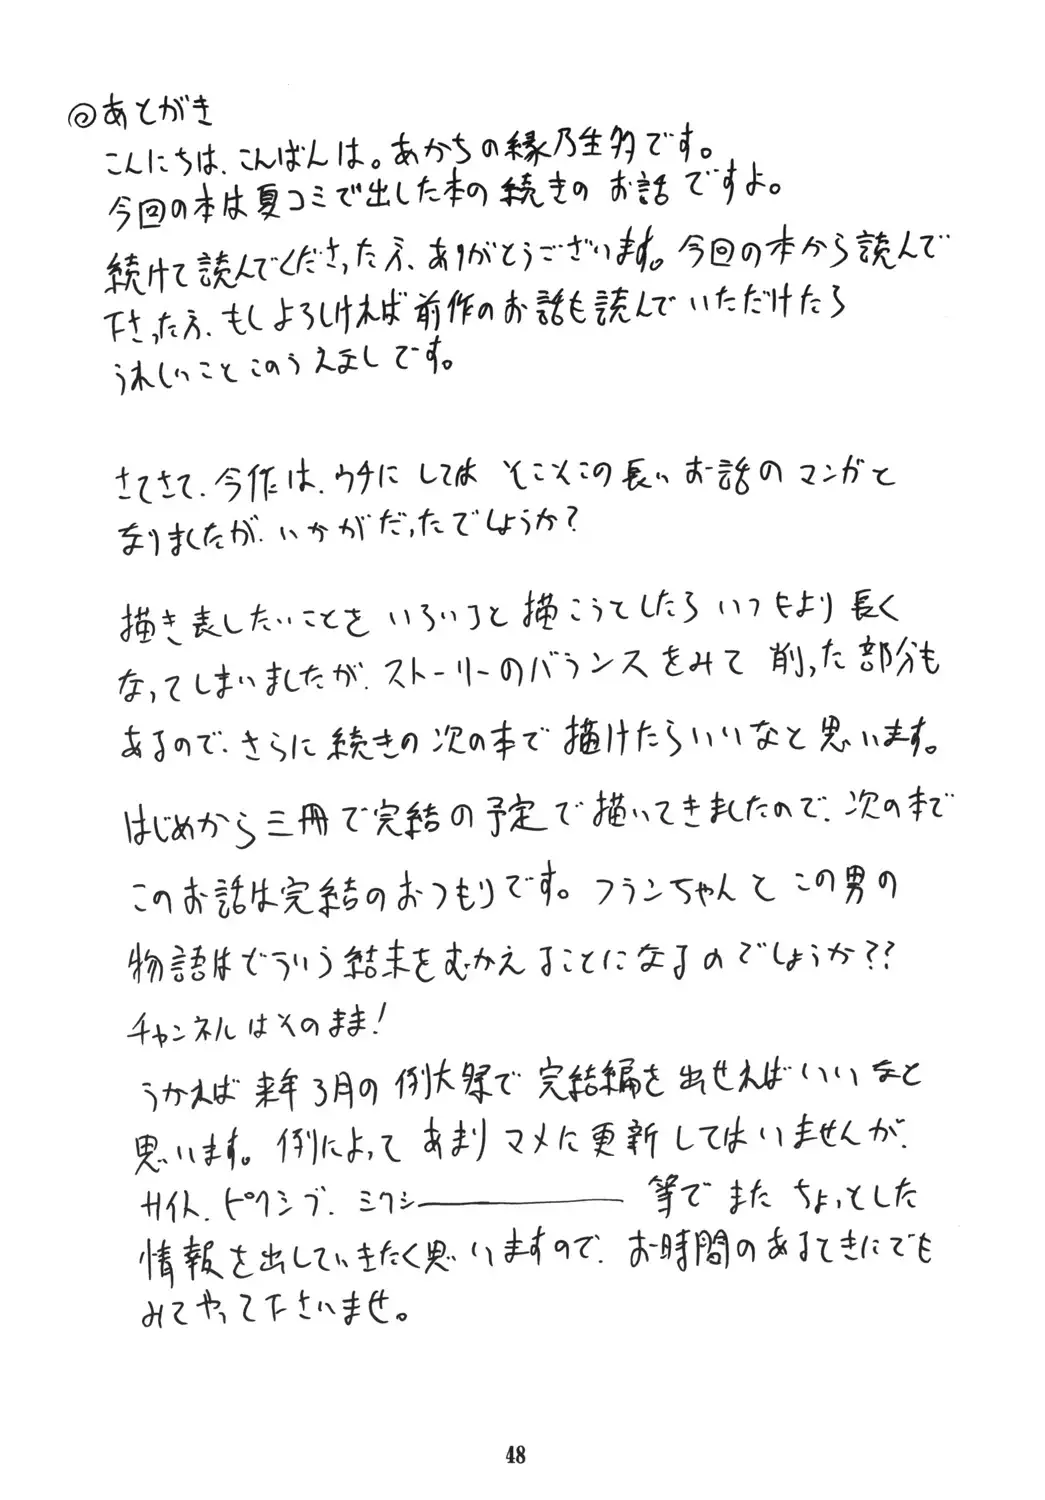 ◎あとがき
こんにちは、こんばんは。あかちの縁乃生多です。
今回の本は夏コミで出した本の続きの お話ですよ。
続けて読んでくださった方、ありがとうございます。今回の本から読んで
下さった方、もしよろしければ前作のお話も読んでいただけたら
うれしいことこのうえなしです。
さてさて、今作は、ウチにしては そこそこの長いお話のマンガと
なりましたが、いかがだったでしょうか？
描き表したいことを いろいろと描こうとしたら いつもより長く
なってしまいましたが、ストーリーのバランスをみて 削った部分も
あるので、さらに続きの次の本で描けたらいいなと思います。
はじめから三冊で完結の予定で描いてきましたので、次の本で
このお話は完結のおつもりです。フランちゃんとこの男の
物語はどういう結末をむかえることになるのでしょうか？？
チャンネルはそのまま！
うかれば 来年3月の例大祭で完結編を出せればいいなと
思います。例によって あまりマメに更新してはいませんが、
サイト、ピクシブ、ミクシー――――――等でまた ちょっとした
情報を出していきたく思いますので、お時間のあるときにでも
みてやって下さいませ。
48